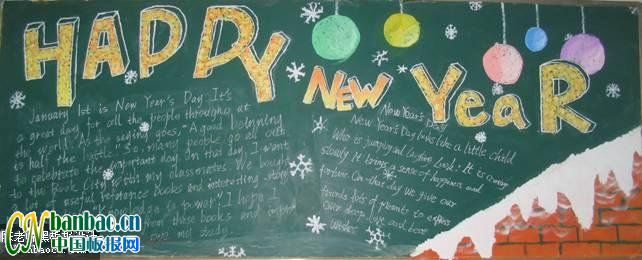 HAPPY NEW YeaR
January 1st is New Year's Day. It's
a great day for all the people throughout
the world. As the saying goes, "A good beginning
is half the battle." So, many people go all out
to celebrate the important day. On that day, I want
to the Book City with my classmates. We bought
reference books and interesting
is power." I hope I
these books and
my study
New Year's Day
New Year's Day looks like a little child
Who is jumping and laughing. Look! It is coming
slowly. It brings a sense of happiness and
fortune. On that day we give our
friends lots of presents to express
our deep love and best
wishes.
CNbanbao.cn
中国板报网